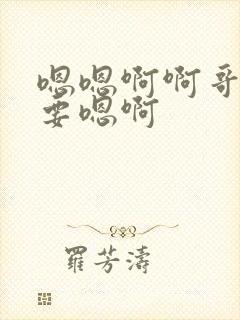 嗯嗯啊啊哥
要嗯啊
羅芳濤